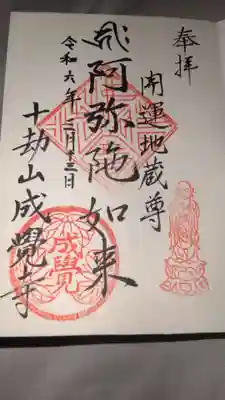 奉拝
開運地蔵尊
阿弥陀如来
令和六年十二月十三日
十劫山成覺寺
成覺